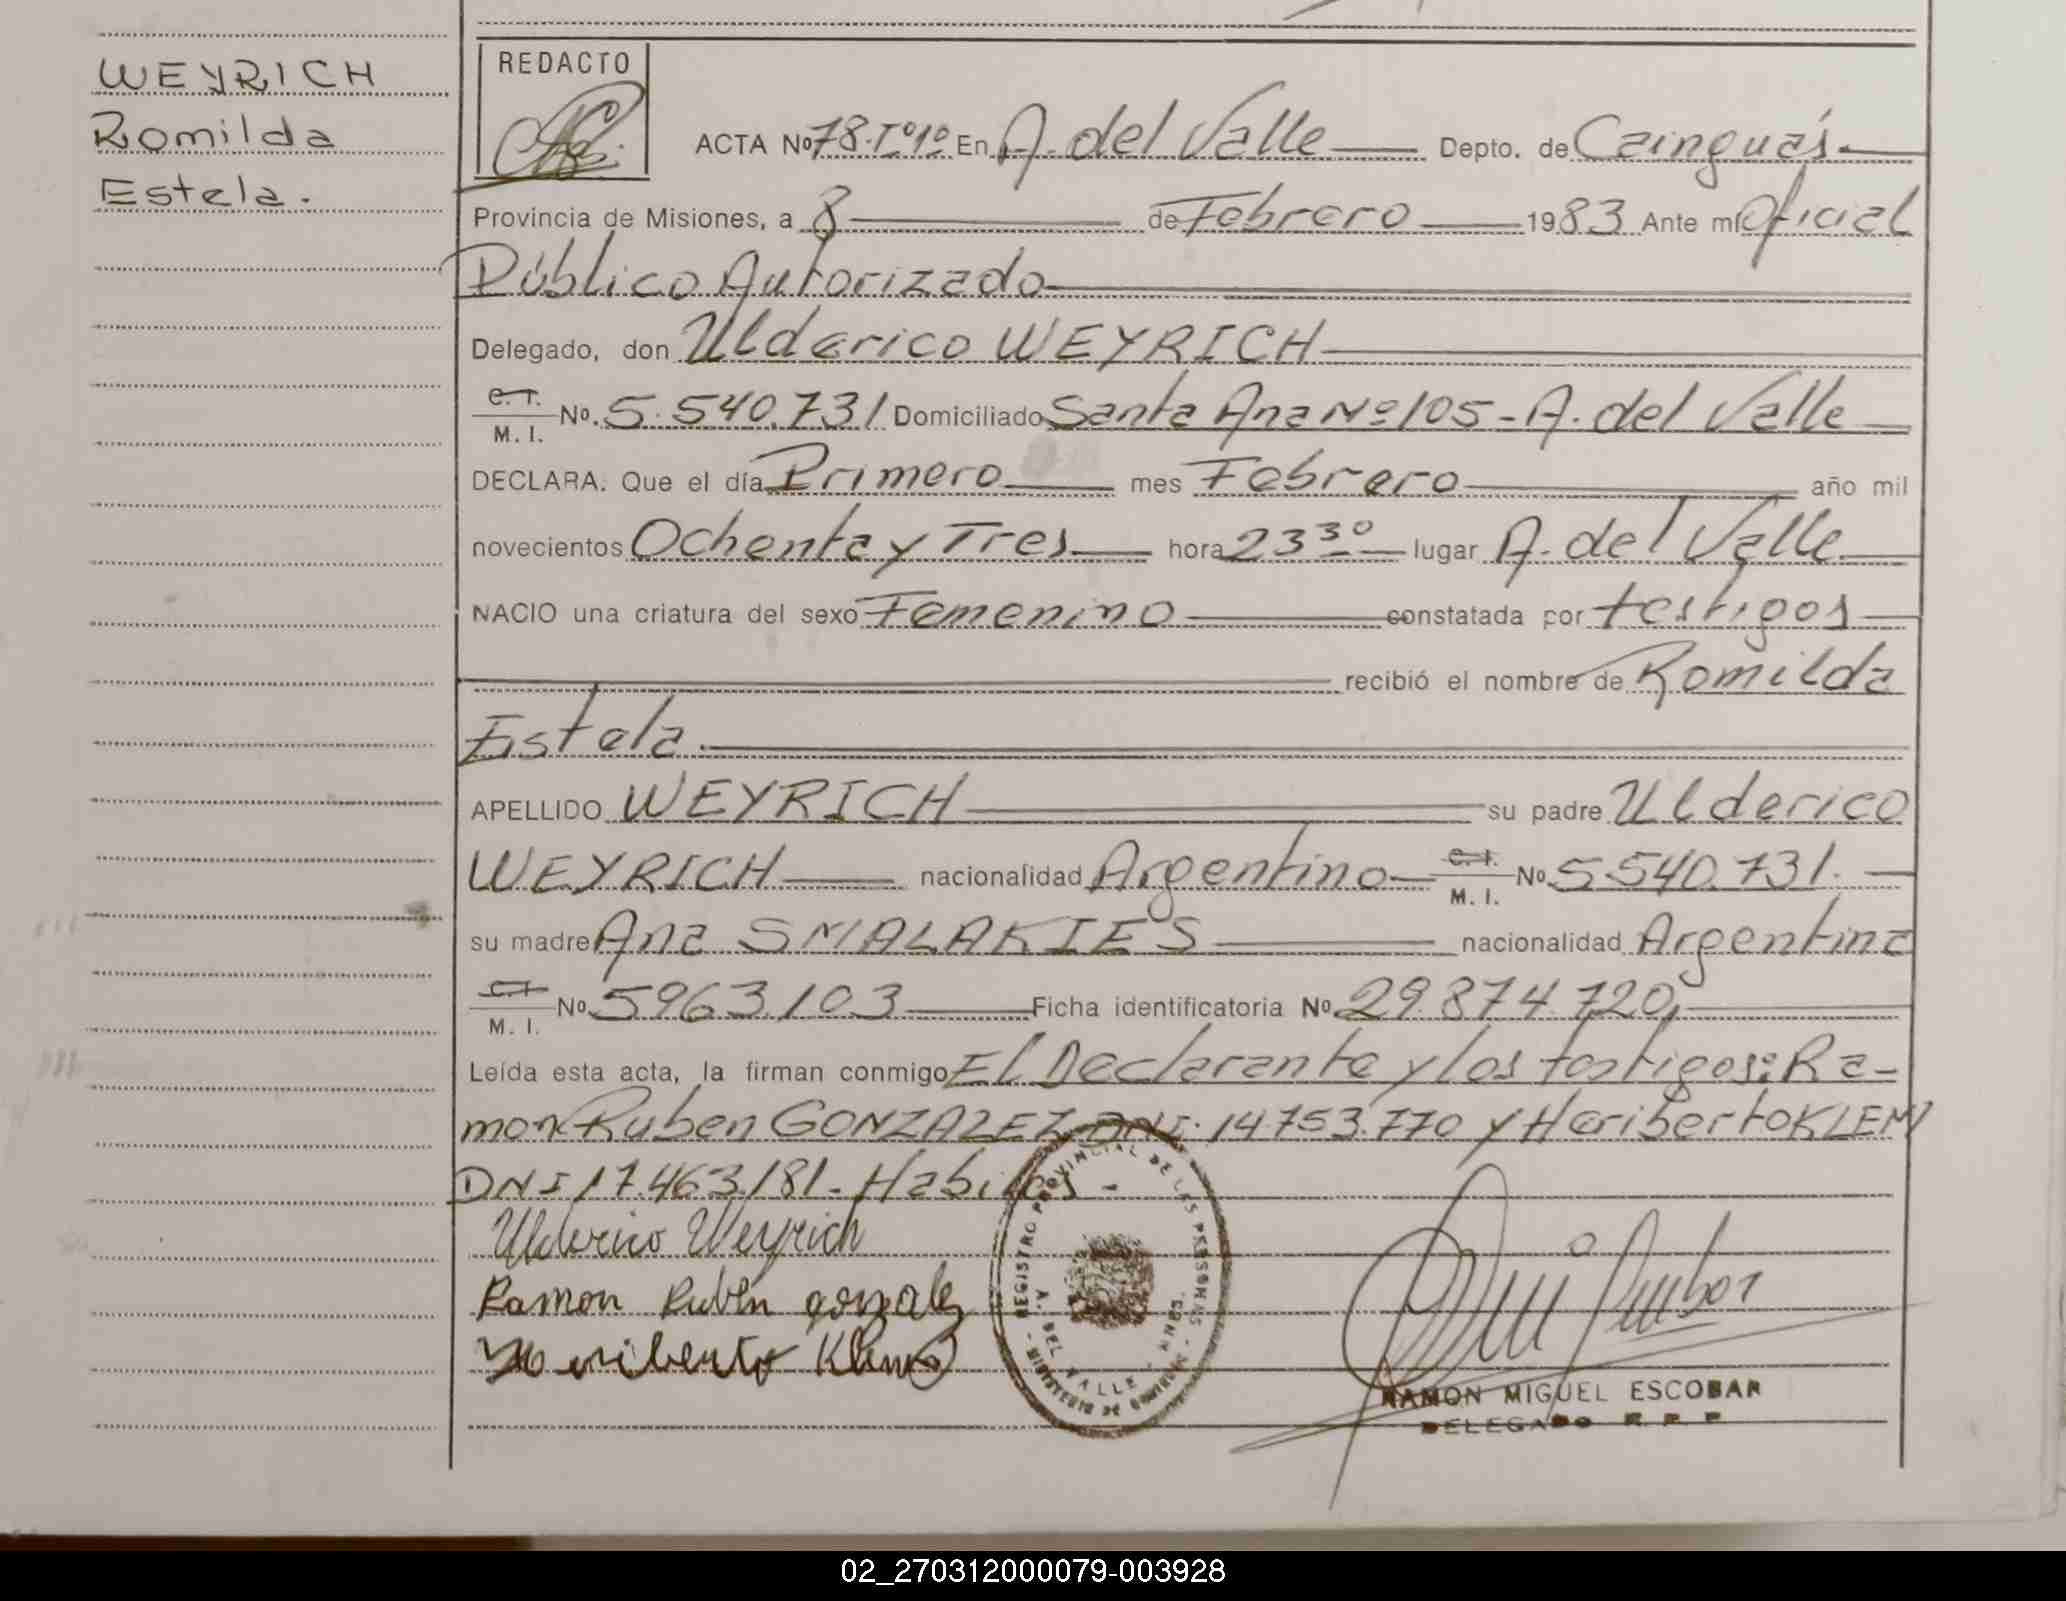 WEYRICH
Romilda
Estela.
REDACTO
ACTA Nº 78-Tº1º En A. del Valle Depto. de Cainguás
Provincia de Misiones, a 8 de Febrero 1983 Ante mí Oficial
Público Autorizado
Delegado, don Ulderico WEYRICH
C.I.
M. I. Nº. 5.540.731 Domiciliado Santa Ana Nº 105 - A. del Valle
DECLARA: Que el día Primero mes Febrero año mil
novecientos Ochenta y Tres hora 23 30 lugar A. del Valle
NACIO una criatura del sexo Femenino constatada por testigos
recibió el nombre de Romilda
Estela.
APELLIDO WEYRICH su padre Ulderico
WEYRICH nacionalidad Argentino C.I. M. I. Nº 5.540.731.
su madre Ana SMALAKIES nacionalidad Argentina
C.I. M. I. Nº 5963.103 Ficha identificatoria Nº 29.874.720,
Leída esta acta, la firman conmigo El Declarante y los testigos: Ra-
mon Ruben GONZALEZ DNI. 14753.770 y Heriberto KLEM
DNI 17.463.181 - Habiles -
Ulderico Weyrich
Ramon Rubén gonzalez
Heriberto Klem
REGISTRO PROVINCIAL DE LAS PERSONAS
A. DEL VALLE - MNES.
RAMON MIGUEL ESCOBAR
DELEGADO R P P
02_270312000079-003928